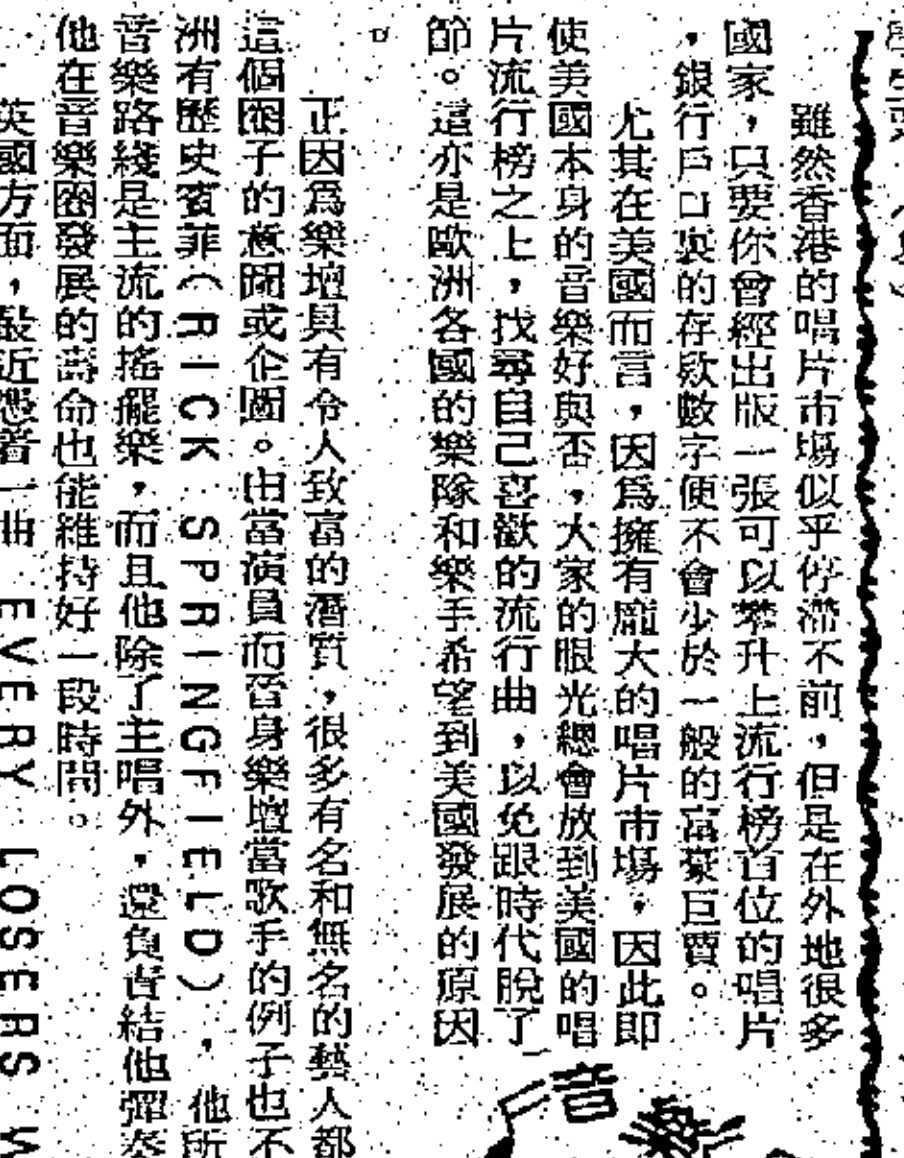 雖然香港的唱片市場似乎停滯不前,但是在外地很多
國家,只要你曾經出版一張可以攀升上流行榜首位的唱片
,銀行戶口裏的存欵數字便不會少於一般的富豪巨賈。
尤其在美國而言,因爲擁有龐大的唱片市場,因此即
使美國本身的音樂好與否,大家的眼光總會放到美國的唱
片流行榜之上,找尋自己喜歡的流行曲,以免跟時代脫了
節。這亦是歐洲各國的樂隊和樂手希望到美國發展的原因
。
正因爲樂壇具有令人致富的潛質,很多有名和無名的藝人都
這個圈子的意圖或企圖。由當演員而晉身樂壇當歌手的例子也不
洲有歷史賓菲(RICK SPRINGFIELD),他所
音樂路綫是主流的搖擺樂,而且他除了主唱外,還負責結他彈奏
他在音樂圈發展的壽命也能維持好一段時間。
英國方面,最近憑着一曲 EVERY LOSERS W
音樂